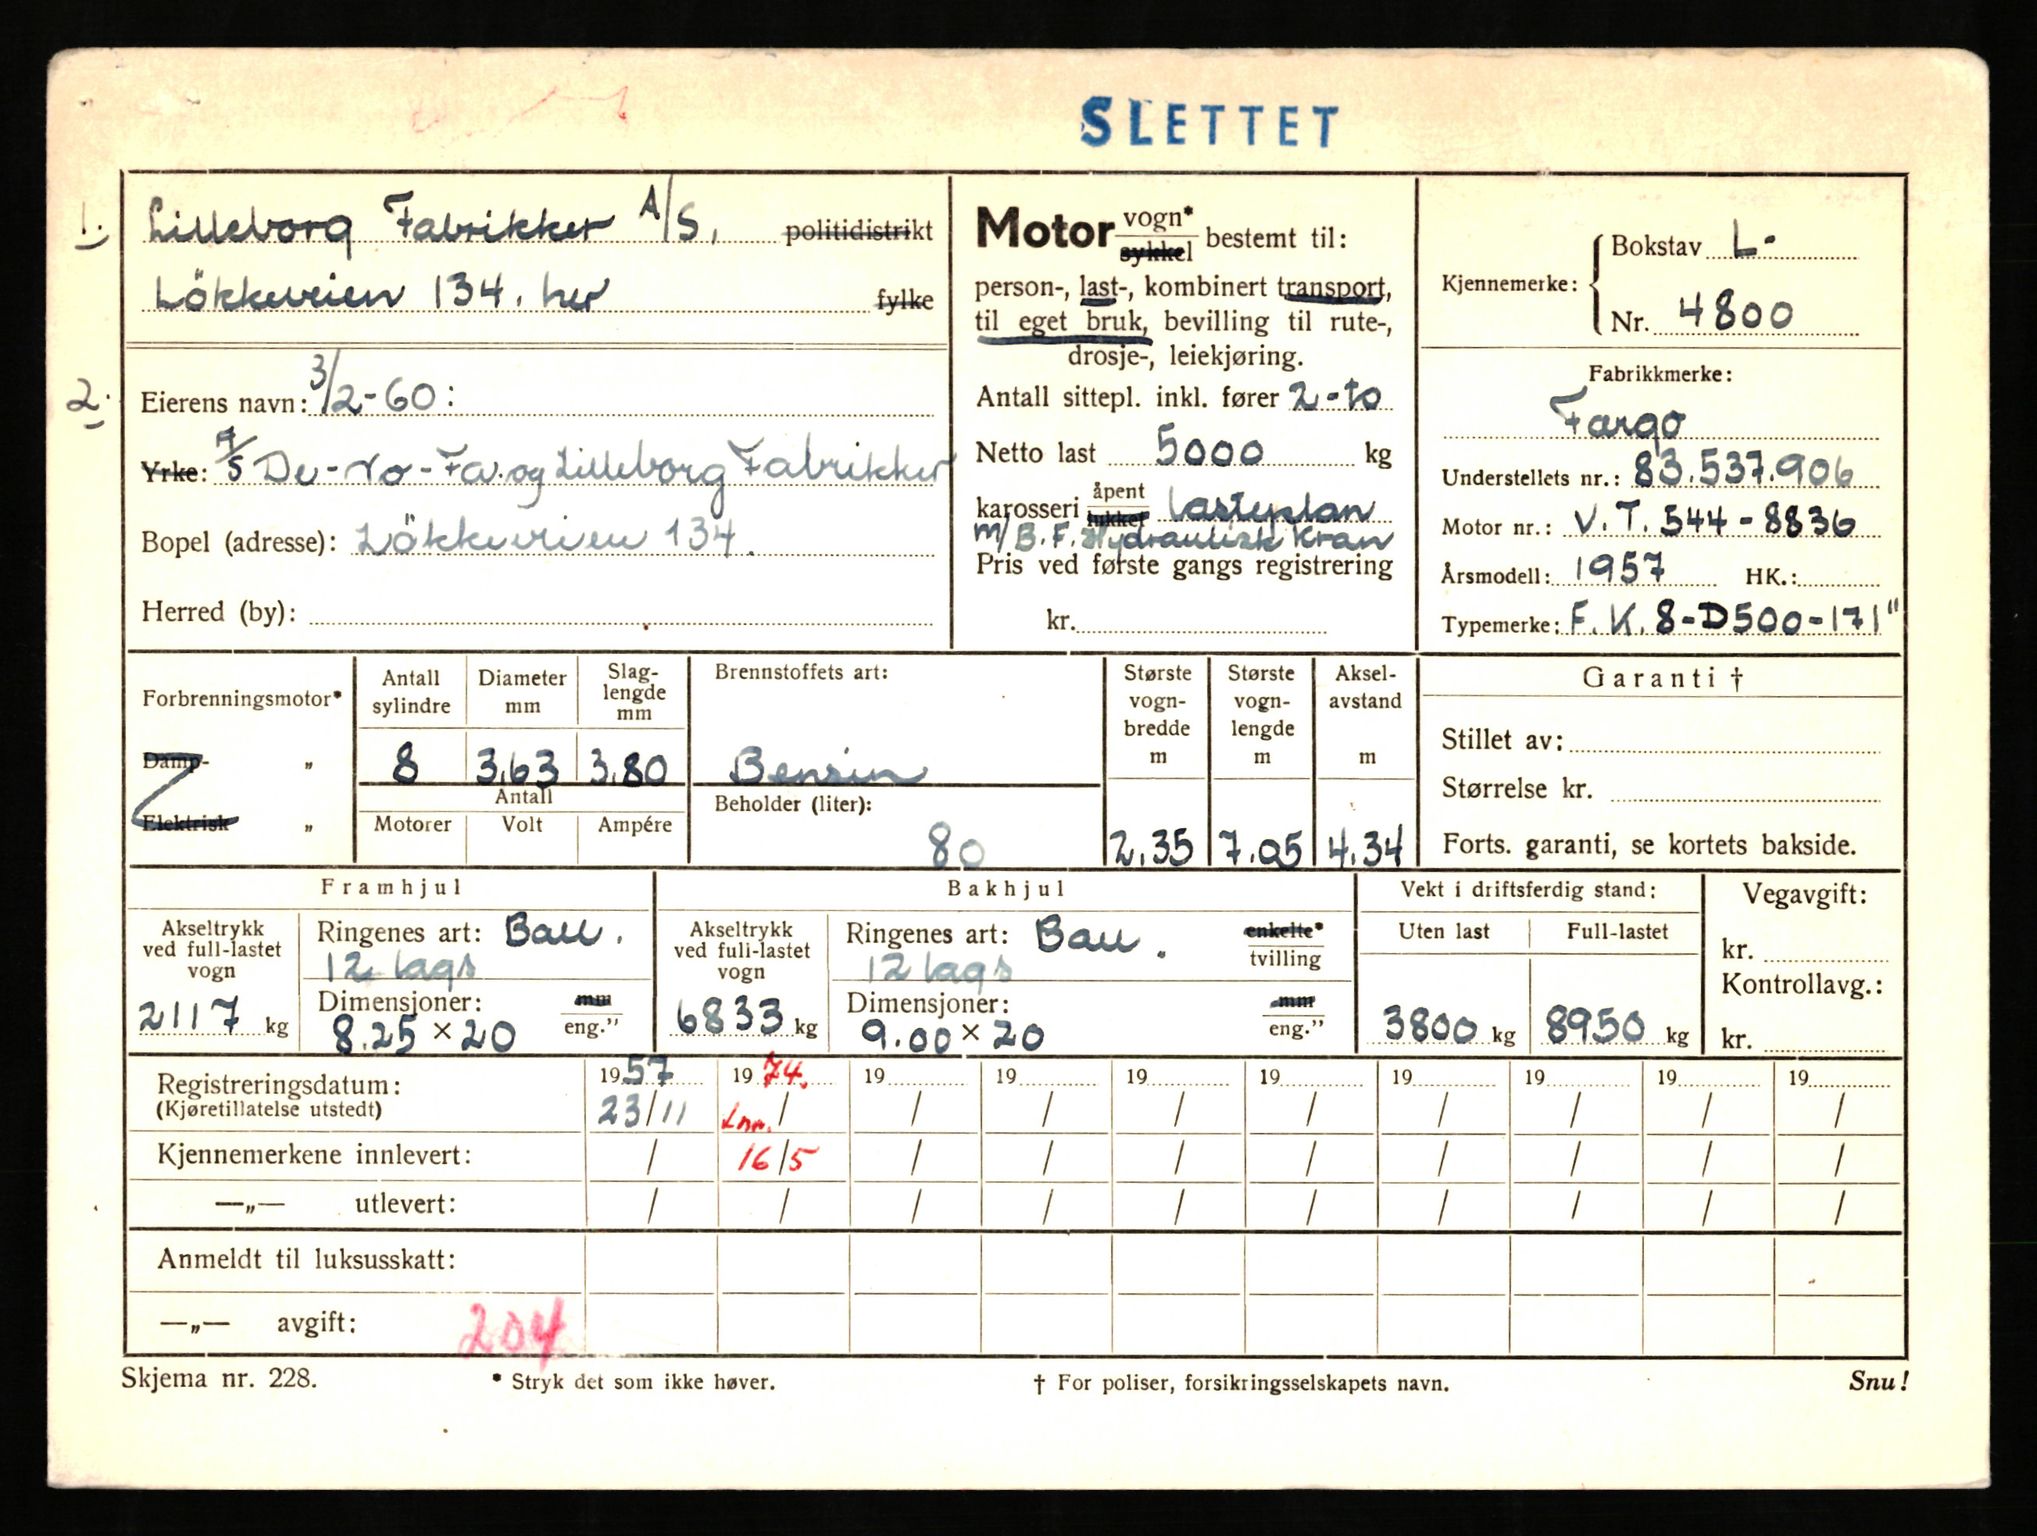 SLETTET
1. Lilleborg Fabrikker A/S, politidistrikt
Lökkeveien 134. her fylke
2. Eierens navn: 3/2-60:
Yrke: A/S De-No-Fa. og Lilleborg Fabrikker
Bopel (adresse): Lökkeveien 134.
Herred (by):
Motor vogn* sykkel bestemt til:
person-, last-, kombinert transport,
til eget bruk, bevilling til rute-,
drosje-, leiekjøring.
Antall sittepl. inkl. fører 2-to
Netto last 5000 kg
karosseri åpent lukket lasteplan
m/B.F. Hydraulisk Kran
Pris ved første gangs registrering
kr.
Kjennemerke: Bokstav L-
Nr. 4800
Fabrikkmerke:
Fargo
Understellets nr.: 83.537.906
Motor nr.: V.T. 544-8836
Årsmodell: 1957 HK.:
Typemerke: F.K.8-D500-171"
Forbrenningsmotor*
Damp- „
Elektrisk „
Antall sylindre 8
Diameter mm 3,63
Slag-lengde mm 3,80
Antall
Motorer Volt Ampére
Brennstoffets art:
Bensin
Beholder (liter):
80
Største vogn-bredde m 2.35
Største vogn-lengde m 7.05
Aksel-avstand m 4.34
Garanti †
Stillet av:
Størrelse kr.
Forts. garanti, se kortets bakside.
Framhjul
Akseltrykk ved full-lastet vogn
2117 kg
Ringenes art: Ball.
12 lags
Dimensjoner: mm
8.25 × 20 eng."
Bakhjul
Akseltrykk ved full-lastet vogn
6833 kg
Ringenes art: Ball. enkelte*
12 lags tvilling
Dimensjoner: mm
9.00 × 20 eng."
Vekt i driftsferdig stand:
Uten last Full-lastet
3800 kg 8950 kg
Vegavgift:
kr.
Kontrollavg.:
kr.
Registreringsdatum: 1957 1974. 19 19 19 19 19 19 19 19
(Kjøretillatelse utstedt) 23/11 Inn. / / / / / / / / /
Kjennemerkene innlevert: / 16/5 / / / / / / / /
—„— utlevert: / / / / / / / / / /
Anmeldt til luksusskatt:
—„— avgift: 204
Skjema nr. 228. * Stryk det som ikke høver. † For poliser, forsikringsselskapets navn. Snu!